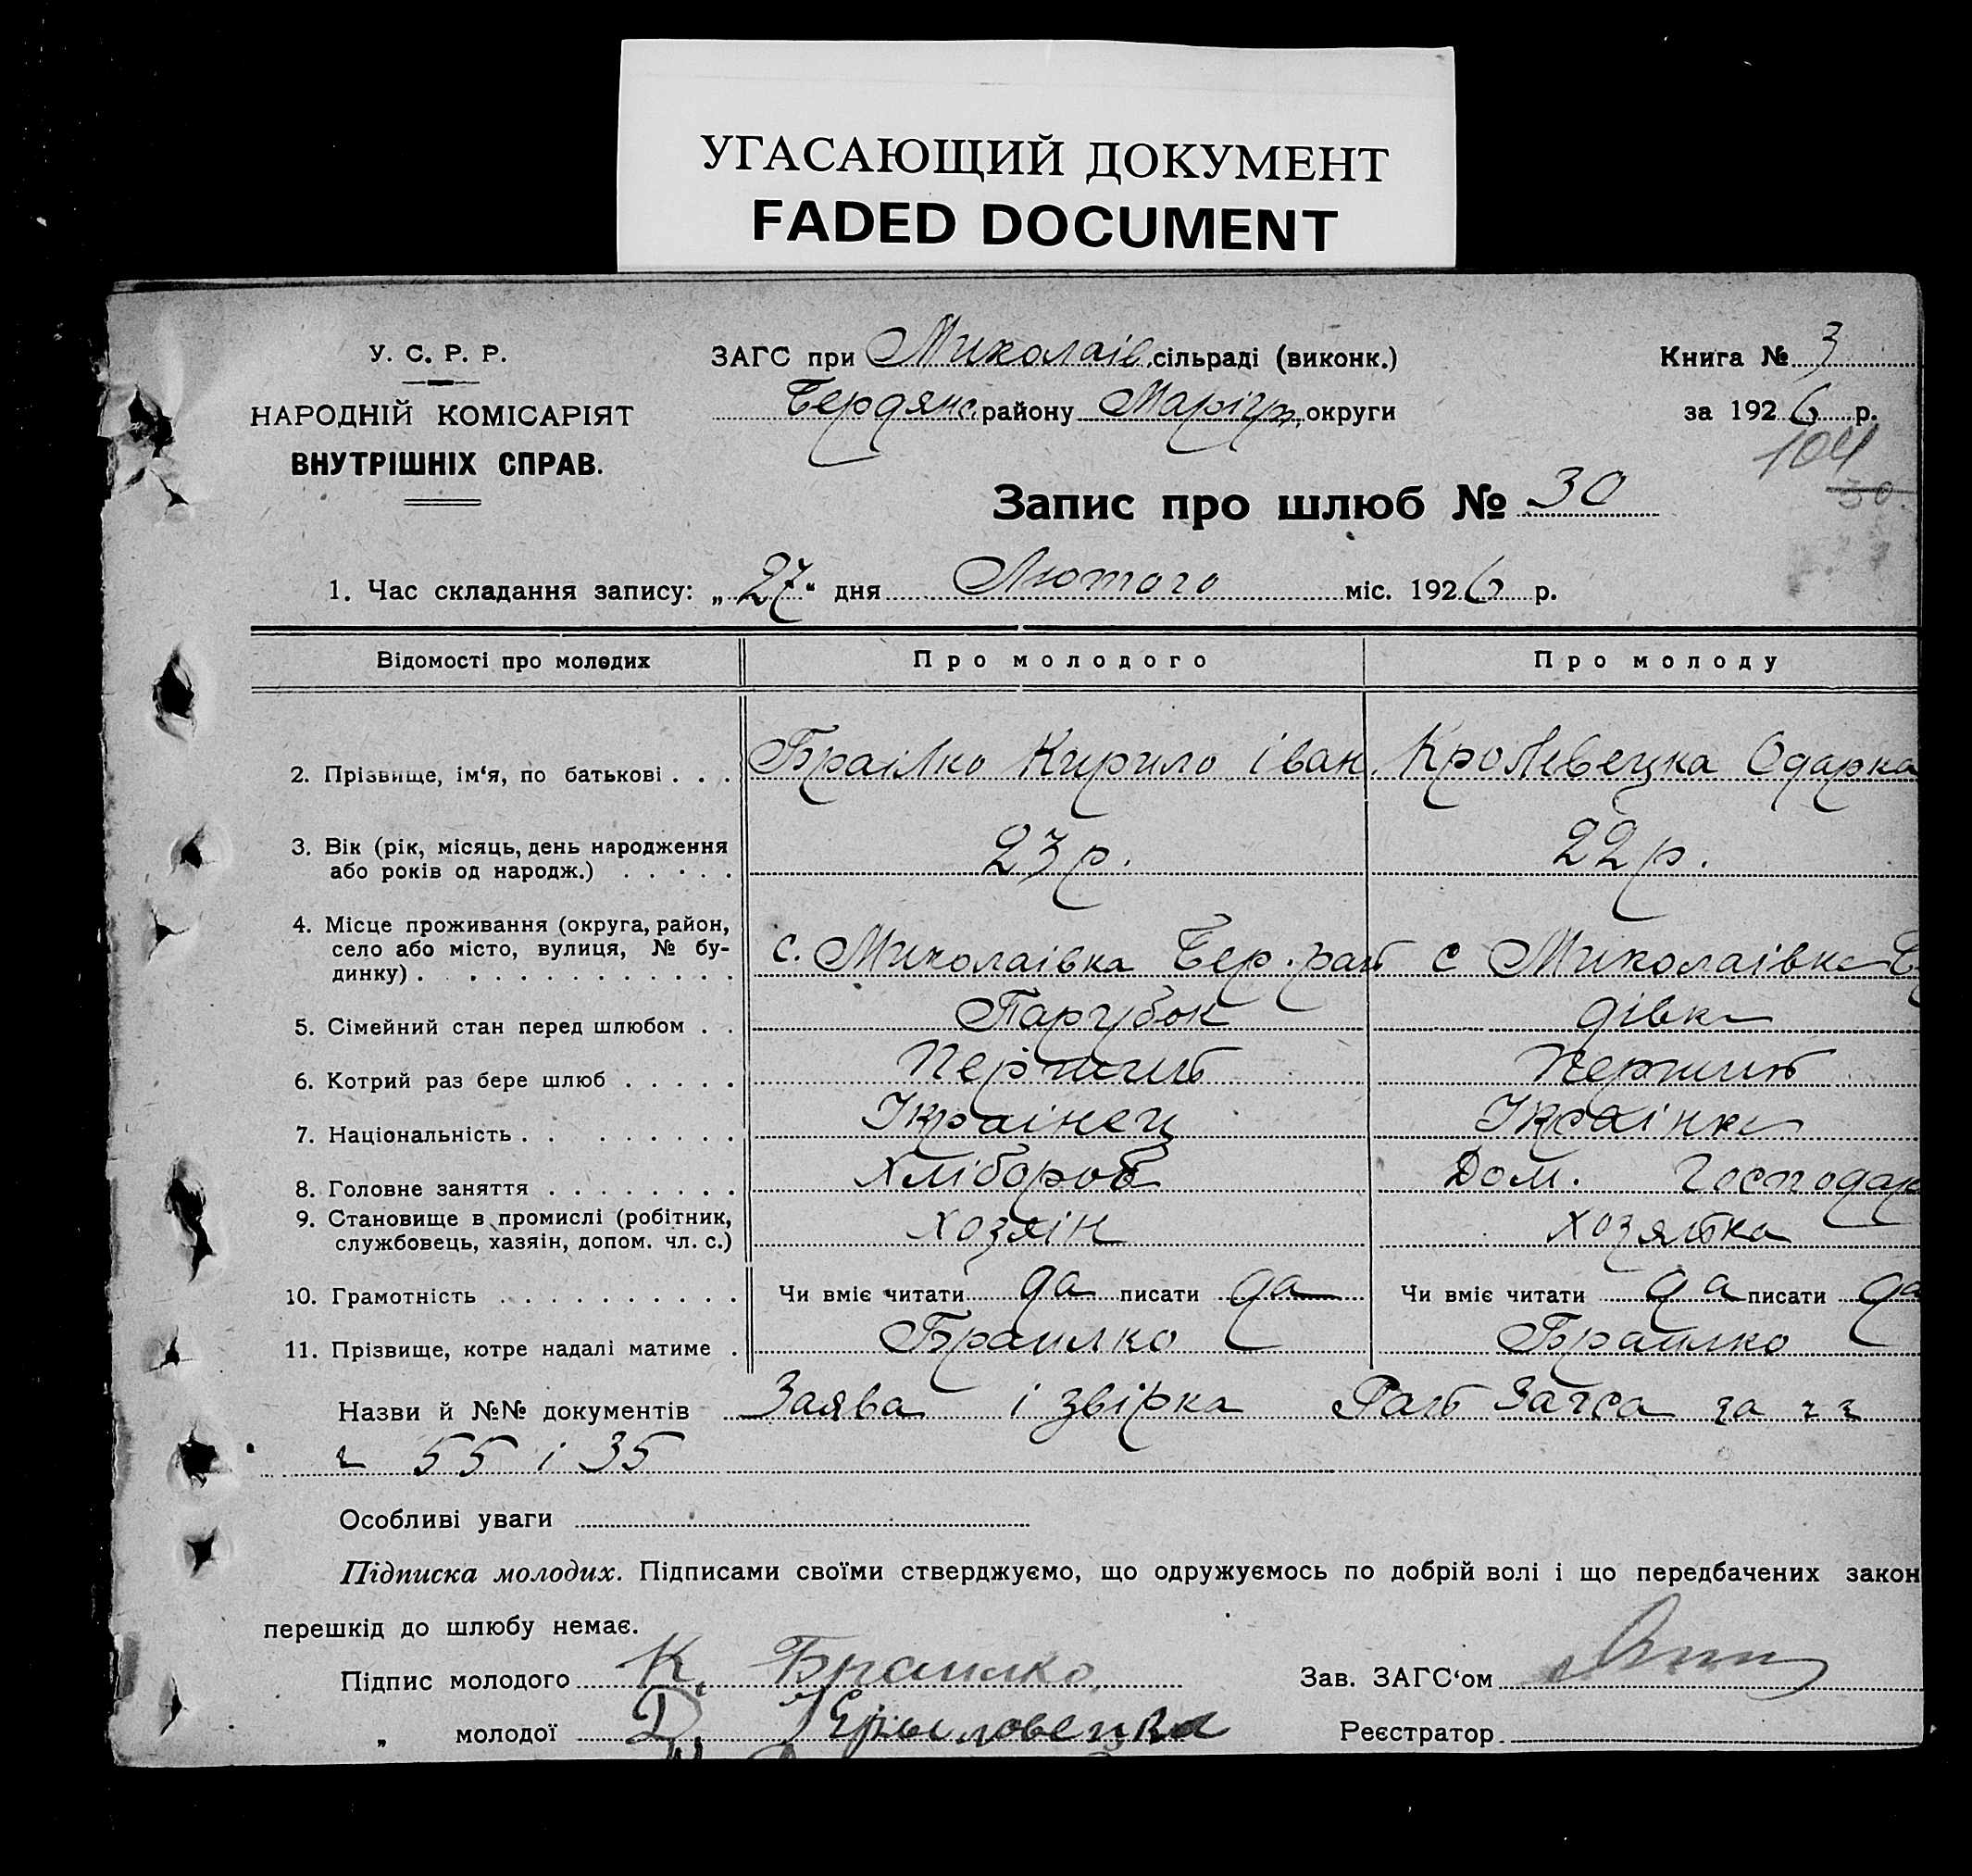 УГАСАЮЩИЙ ДОКУМЕНТ
FADED DOCUMENT
У. С. Р. Р.
НАРОДНІЙ КОМІСАРІЯТ
ВНУТРІШНІХ СПРАВ.
ЗАГС при Миколаів. сільраді (виконк.)
Бердянс. району Маріуп. округи
Книга № 3
за 1926 р.
104
30
Запис про шлюб № 30
1. Час складання запису: „27“ дня Лютого міс. 1926 р.
Відомості про молодих Про молодого Про молоду
2. Прізвище, ім‘я, по батькові . . . Браілко Кирило Іван. Кролевецка Одарка
3. Вік (рік, місяць, день народження
або років од народж.) . . . . . 23 р. 22 р.
4. Місце проживання (округа, район,
село або місто, вулиця, № бу-
динку) . . . . . . . . . . . . с. Миколаівка Бер. рай с Миколаівка Б
5. Сімейний стан перед шлюбом . . Парубок дівка
6. Котрий раз бере шлюб . . . . . Перший Перший
7. Національність . . . . . . . . Украінец Украінка
8. Головне заняття . . . . . . . . Хлібороб Дом. Господар
9. Становище в промислі (робітник,
службовець, хазяін, допом. чл. с.) хозяін хозяйка
10. Грамотність . . . . . . . . . . Чи вміє читати да писати да Чи вміє читати да писати да
11. Прізвище, котре надалі матиме . Браилко Браилко
Назви й №№ документів Заява і звірка Рай Загса за
55 і 35
Особливі уваги
Підписка молодих. Підписами своїми стверджуємо, що одружуємось по добрій волі і що передбачених закон
перешкід до шлюбу немає.
Підпис молодого К. Браилко. Зав. ЗАГС‘ом
„ молодої Д. Реєстратор